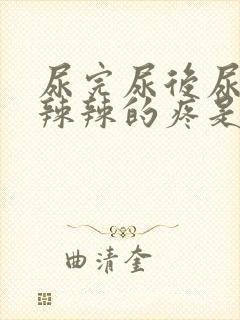 尿完尿後尿
辣辣的疼是
曲清奎